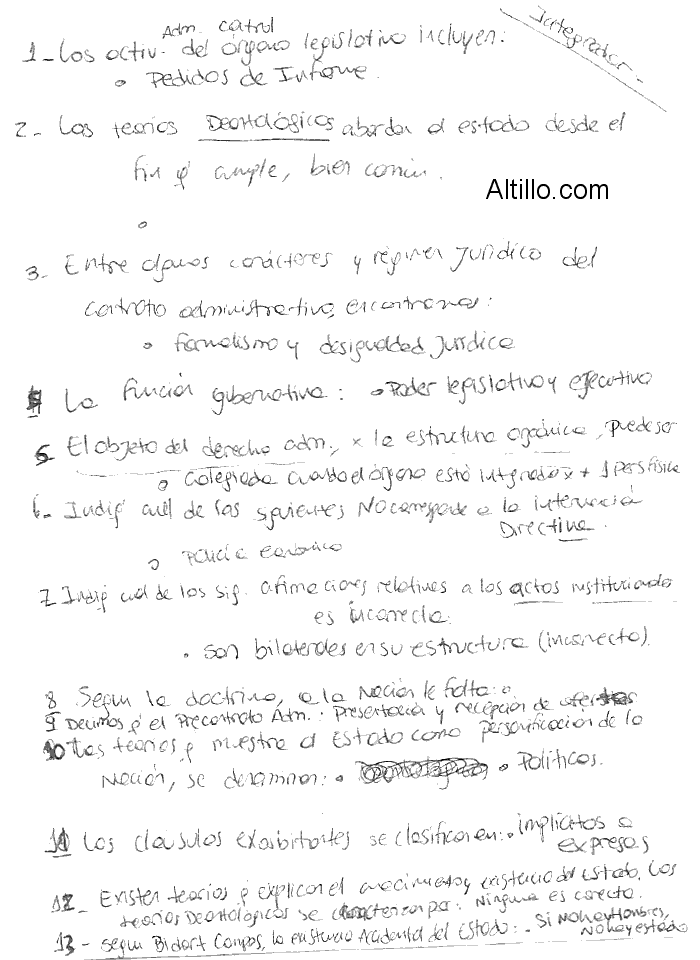 Integrador -
Adm. control
1- Los activ. del órgano legislativo incluyen:
• Pedidos de Informe.
2- Las teorías Deontológicos abordan al estado desde el
fin q' cumple, bien común.
Altillo.com
3- Entre algunos carácteres y régimen Jurídico del
Contrato administrativo, encontramos:
• formalismo y desigualdad Jurídica
4 La función gubernativa: • Poder legislativo y ejecutivo
5 El objeto del derecho adm., x la estructura orgánica, puede ser
• Colegiada cuando el órgano está integrado x + 1 pers física
6- Indiq' cuál de las siguientes No corresponde a la intervención
Directiva.
• Policía económico
7 Indiq' cual de los sig. afirmaciones relativas a los actos institucionales
es incorrecta:
• Son bilaterales en su estructura (incorrecto).
8 Según la doctrina, a la Nación le falta:
9 Decimos q' el Precontrato Adm.: Presentación y recepción de ofertas
10 Las teorías q' muestra al Estado como personificación de la
Nación, se denominan: • Políticas.
11 Los clausulas exorbitantes se clasifican en: • implícitas o
expresas
12- Existen teorías q' explican el nacimiento y existencia del Estado. Las
teorías Deontológicas se caracterizan por: Ninguna es correcta.
13- Según Bidart Campos, la existencia Accidental del Estado: - Si no hay hombres,
No hay estado